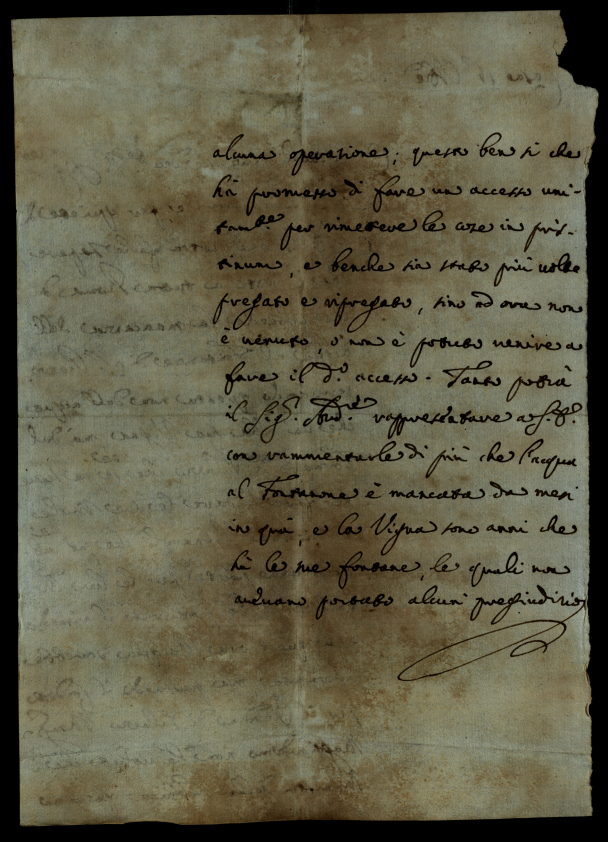 alcuna operatione; questo ben si che
hà promesso di fare un accesso uni-
tam.te per rimettere le cose in pris-
tinum, e benche sia stato più volte
pregato e ripregato, sino ad ora non
è venuto, ò non è potuto venire a
fare il d.o accesso. Tanto potrà
il Sig.r Aud.re rappresẽtare a S.E.
con rammentarle di più che l'acqua
al Fontanone è mancata da mesi
in quà, e la Vigna sono anni che
hà le sue fontane, le quali non
aueuano portato alcun pregiuditio